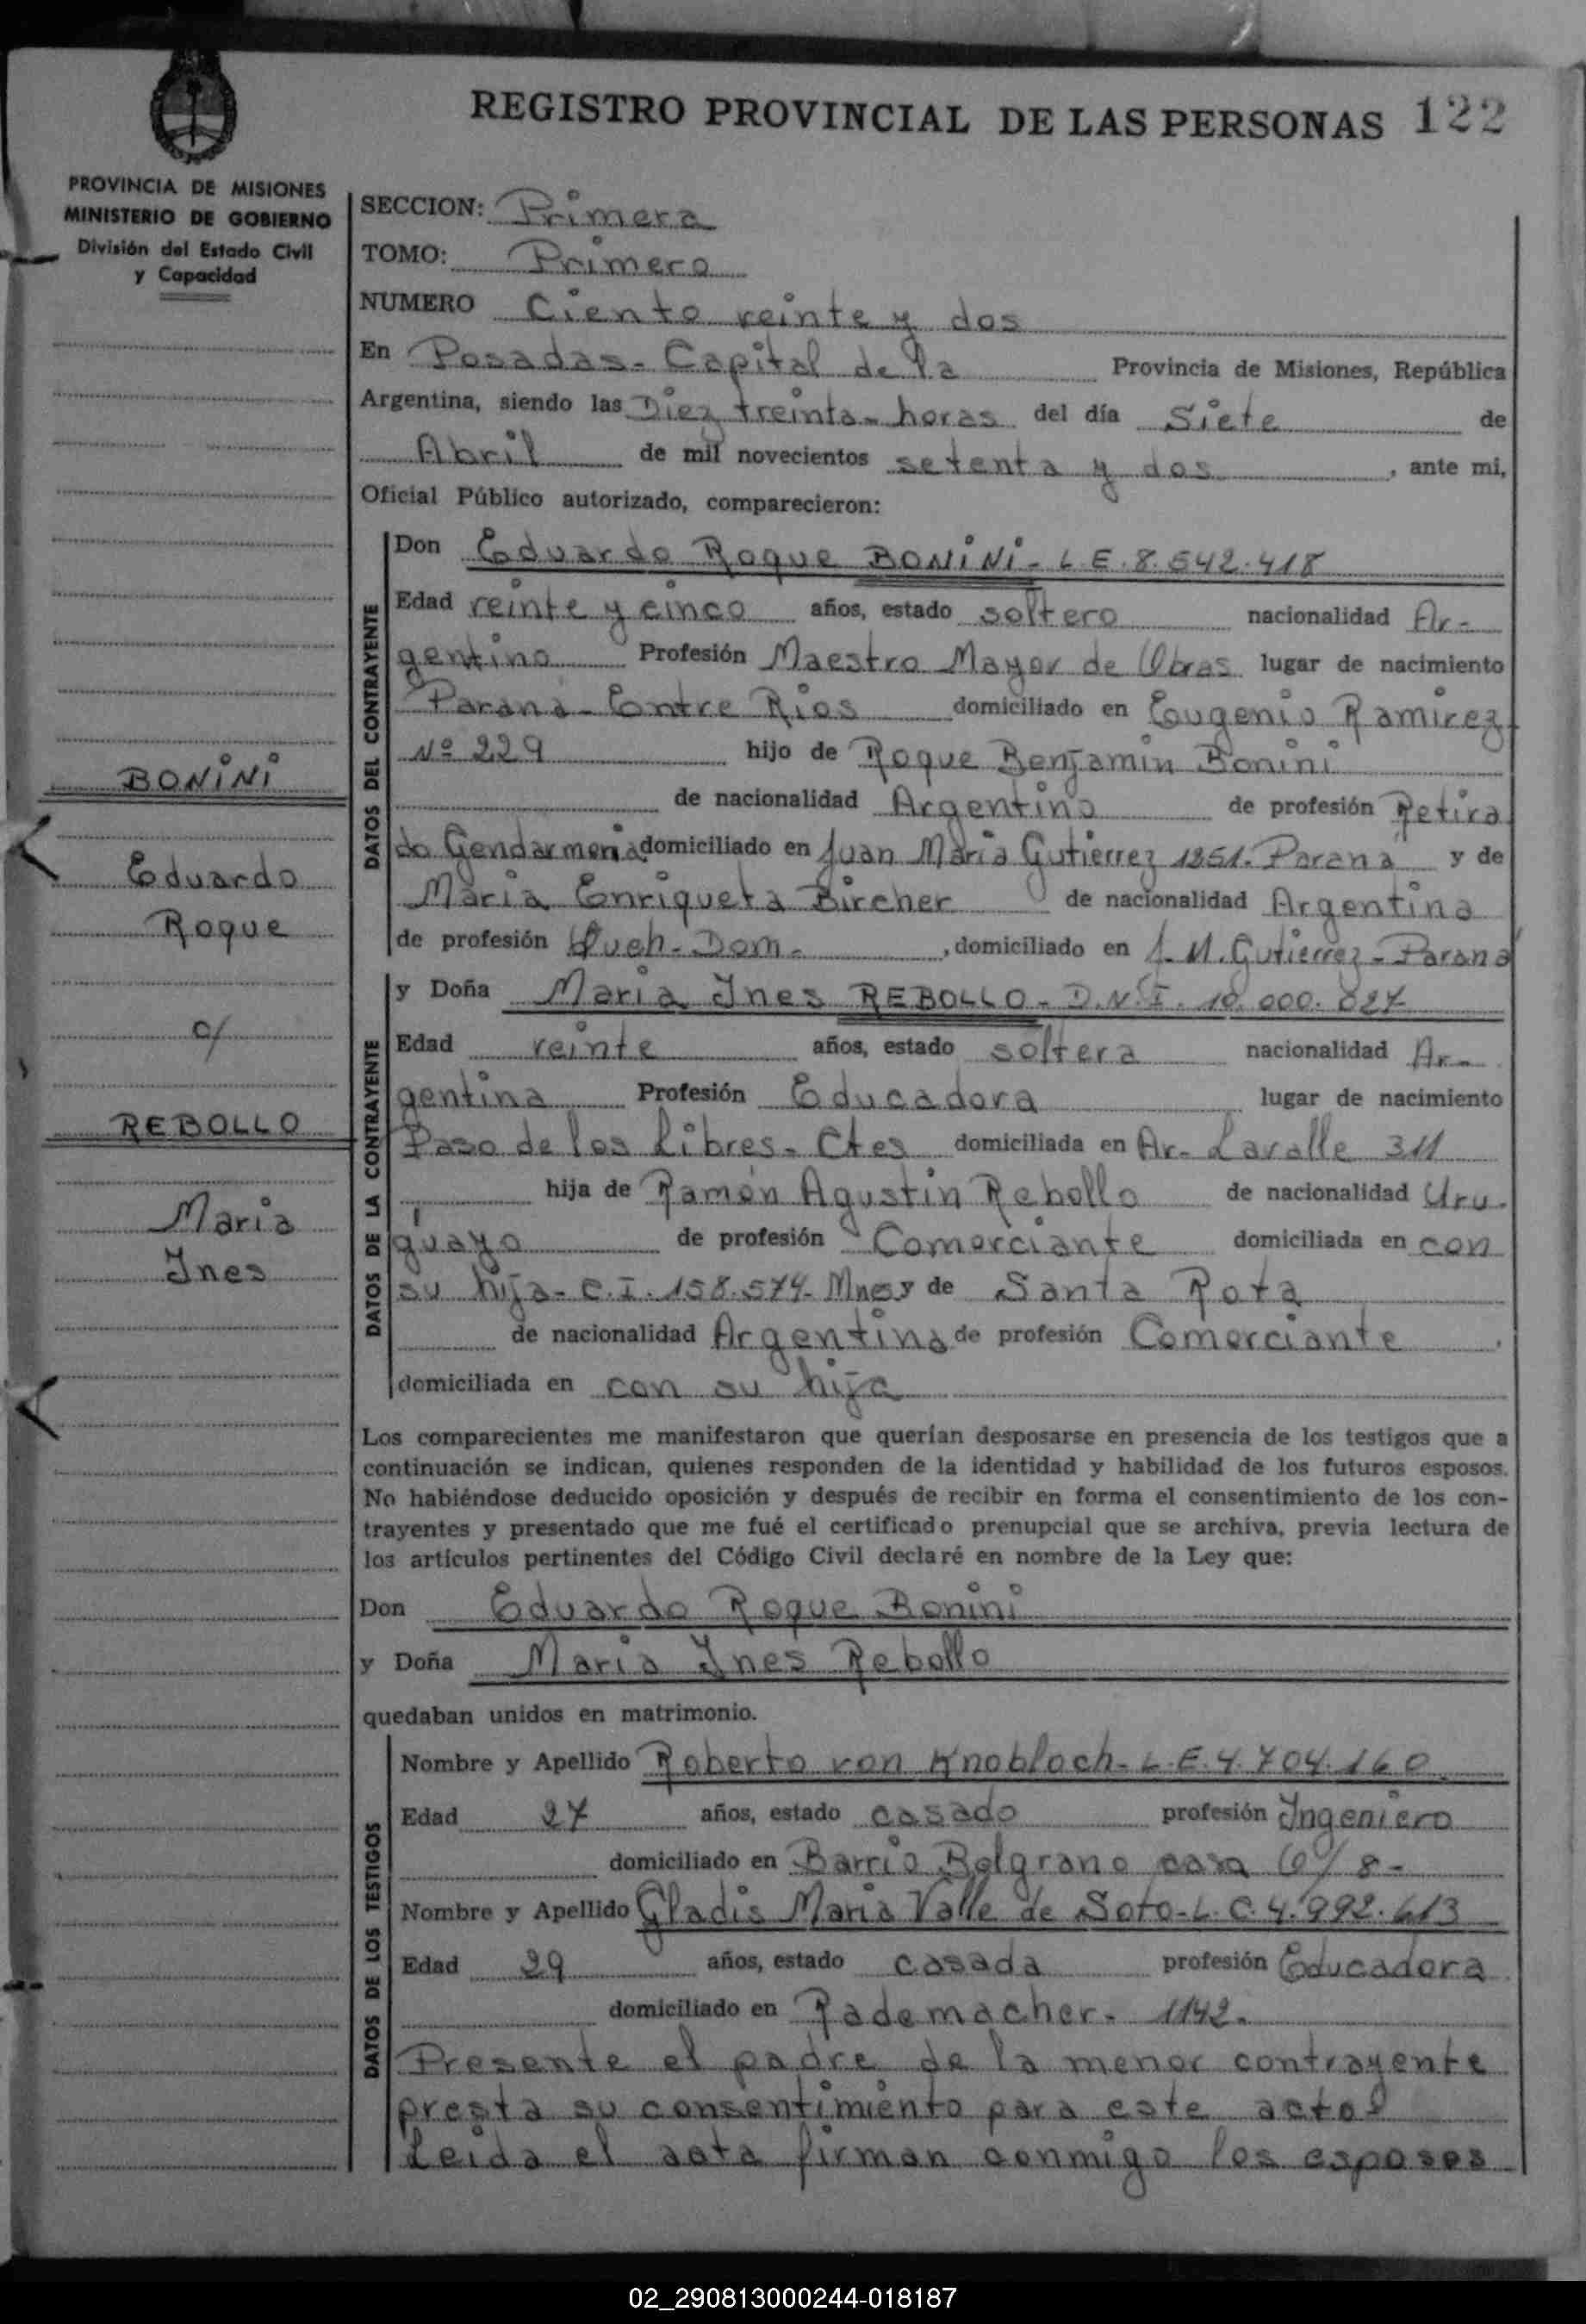 REGISTRO PROVINCIAL DE LAS PERSONAS 122
PROVINCIA DE MISIONES
MINISTERIO DE GOBIERNO
División del Estado Civil
y Capacidad
SECCION: Primera
TOMO: Primero
NUMERO Ciento veinte y dos
En Posadas - Capital de la Provincia de Misiones, República
Argentina, siendo las Diez treinta - horas del día Siete de
Abril de mil novecientos setenta y dos, ante mi,
Oficial Público autorizado, comparecieron:
DATOS DEL CONTRAYENTE
Don Eduardo Roque BONINI - L.E. 8.542.418
Edad veinte y cinco años, estado soltero nacionalidad Ar-
gentino Profesión Maestro Mayor de Obras lugar de nacimiento
Paraná - Entre Rios domiciliado en Eugenio Ramirez
Nº 229 hijo de Roque Benjamin Bonini
de nacionalidad Argentino de profesión Retira
do Gendarmeria domiciliado en Juan Maria Gutierrez 1251. Paraná y de
Maria Enriqueta Bircher de nacionalidad Argentina
de profesión Queh-Dom-, domiciliado en J. M. Gutierrez - Paraná
BONINI
Eduardo
Roque
c/
REBOLLO
Maria
Ines
DATOS DE LA CONTRAYENTE
y Doña Maria Ines REBOLLO - D.N.I. 10.000.027
Edad veinte años, estado soltera nacionalidad Ar-
gentina Profesión Educadora lugar de nacimiento
Paso de los Libres - Ctes domiciliada en Av. Lavalle 311
hija de Ramón Agustin Rebollo de nacionalidad Uru-
guayo de profesión Comerciante domiciliada en con
su hija - C.I. 158.574 - Mnes y de Santa Rota
de nacionalidad Argentina de profesión Comerciante
domiciliada en con su hija
Los comparecientes me manifestaron que querían desposarse en presencia de los testigos que a
continuación se indican, quienes responden de la identidad y habilidad de los futuros esposos.
No habiéndose deducido oposición y después de recibir en forma el consentimiento de los con-
trayentes y presentado que me fué el certificado prenupcial que se archiva, previa lectura de
los artículos pertinentes del Código Civil declaré en nombre de la Ley que:
Don Eduardo Roque Bonini
y Doña Maria Ines Rebollo
quedaban unidos en matrimonio.
DATOS DE LOS TESTIGOS
Nombre y Apellido Roberto von Knobloch - L.E. 4.704.160
Edad 27 años, estado casado profesión Ingeniero
domiciliado en Barrio Belgrano casa 8 -
Nombre y Apellido Gladis Maria Valle de Soto - L.C. 4.992.613
Edad 29 años, estado casada profesión Educadora
domiciliado en Rademacher - 1142.
Presente el padre de la menor contrayente
presta su consentimiento para este acto
Leida el acta firman conmigo los esposos
02_290813000244-018187